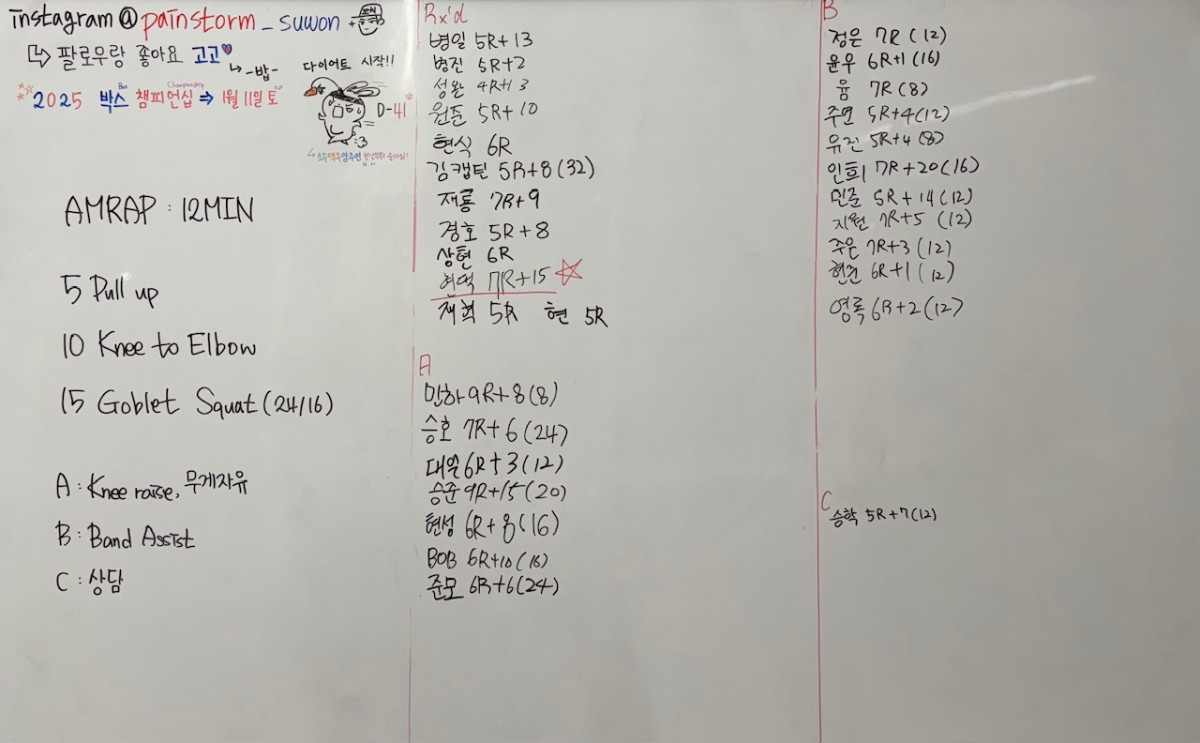 instagram@painstorm_suwon +
팔로우랑 좋아요 고고
-밥-
2025 박스 챔피언십 ⇒ 1월 11일 토
Box
Championship
다이어트 시작!!
D-41
:3
AMRAP : 12MIN
5 Pull up
10 Knee to Elbow
15 Goblet Squat (24/16)
A : Knee raise, 무게자유
B : Band Assist
C : 상담
Rx'd
병일 5R+13
병진 5R+2
성완 4R+13
원준 5R+10
현식 6R
김캡틴 5R+8(32)
재룡 7R+9
경호 5R+8
상현 6R
7R+15
재혁 5R 현 5R
A
민하 9R+8(8)
승호 7R+6(24)
대욱 6R+3(12)
승준 9R+15(20)
현성 6R+8(16)
BOB 6R+10(16)
준모 6R+6(24)
B
정은 7R (12)
윤우 6R+1(16)
윰 7R(8)
주연 5R+4(12)
유진 5R+4(8)
인희 7R+20(16)
민준 5R+14(12)
지원 7R+5 (12)
주은 7R+3(12)
현준 6R+1(12)
영록 6R+2(12)
C
승학 5R+7(12)